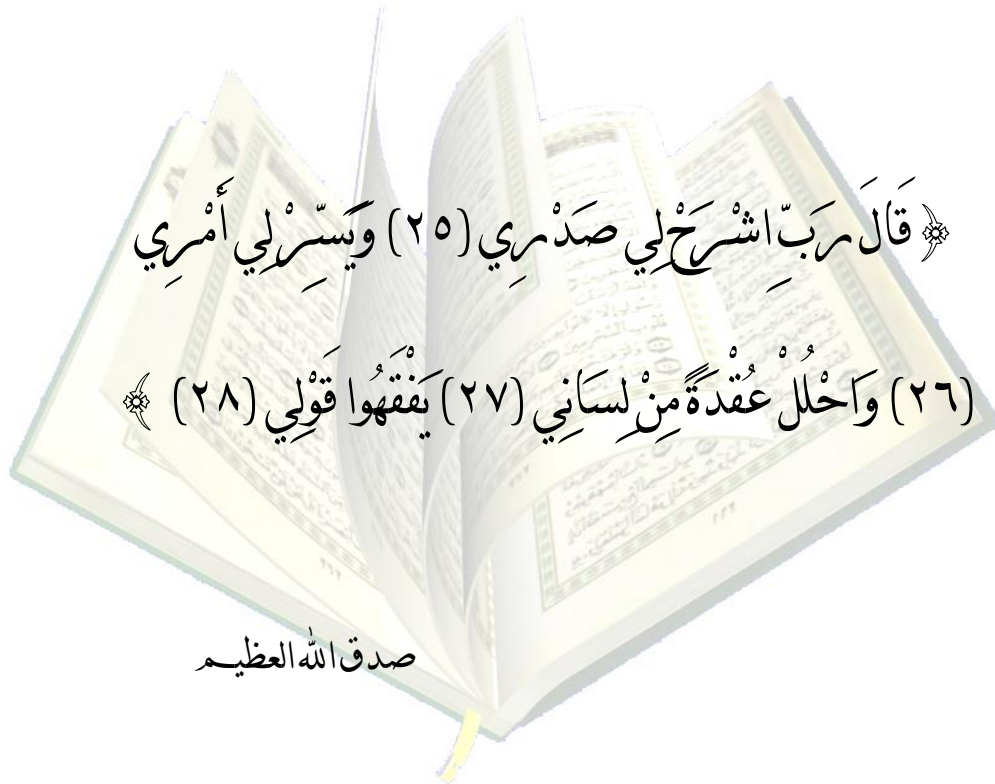 ﴿ قَالَ رَبِّ اشْرَحْ لِي صَدْرِي (٢٥) وَيَسِّرْ لِي أَمْرِي
(٢٦) وَاحْلُلْ عُقْدَةً مِنْ لِسَانِي (٢٧) يَفْقَهُوا قَوْلِي (٢٨) ﴾
صدق الله العظيم